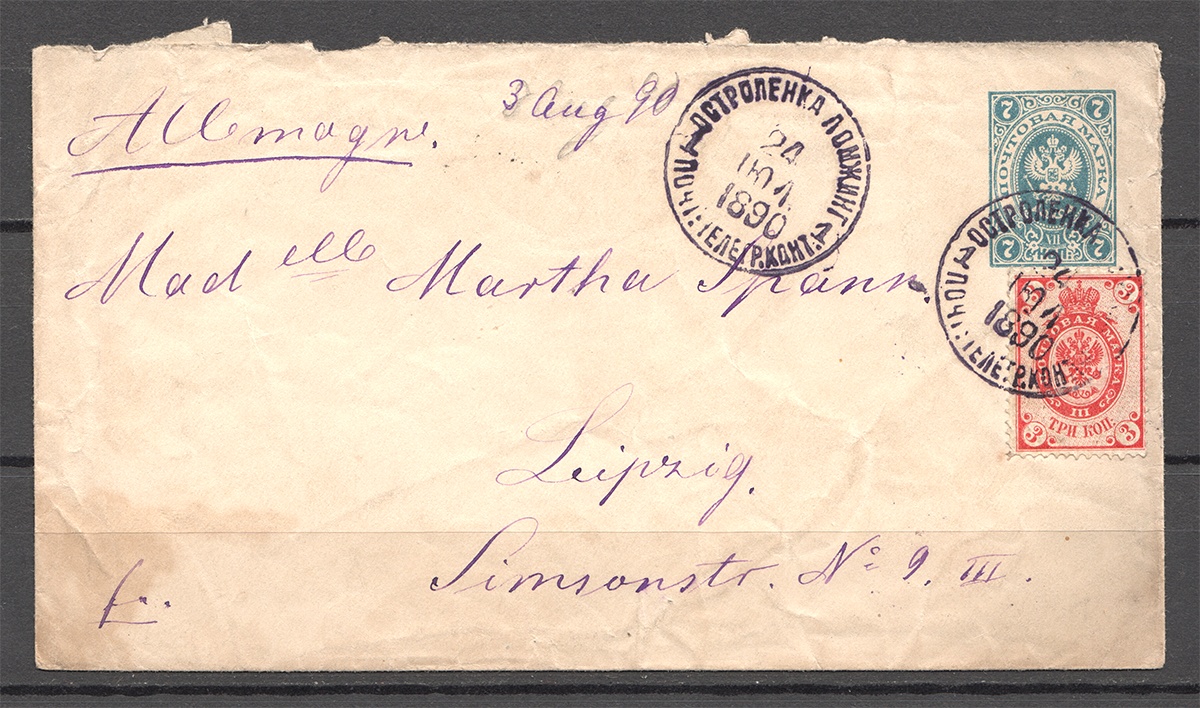 Allemagne.
3 Aug 90
ОСТРОЛЕНКА ЛОМЖИНГ.
24
ІЮЛ.
1890
ПОЧТ: ТЕЛЕГР. КОНТ.
7 7
ПОЧТОВАЯ МАРКА
VII
7 7
ОСТРОЛЕНКА
24
ІЮЛ
1890
ПОЧТ: ТЕЛЕГР. КОНТ
Madelle Martha Spann.
3 3
ПОЧТОВАЯ МАРКА
III
ТРИ КОП.
3 3
Leipzig.
Simsonstr. No 9. III.